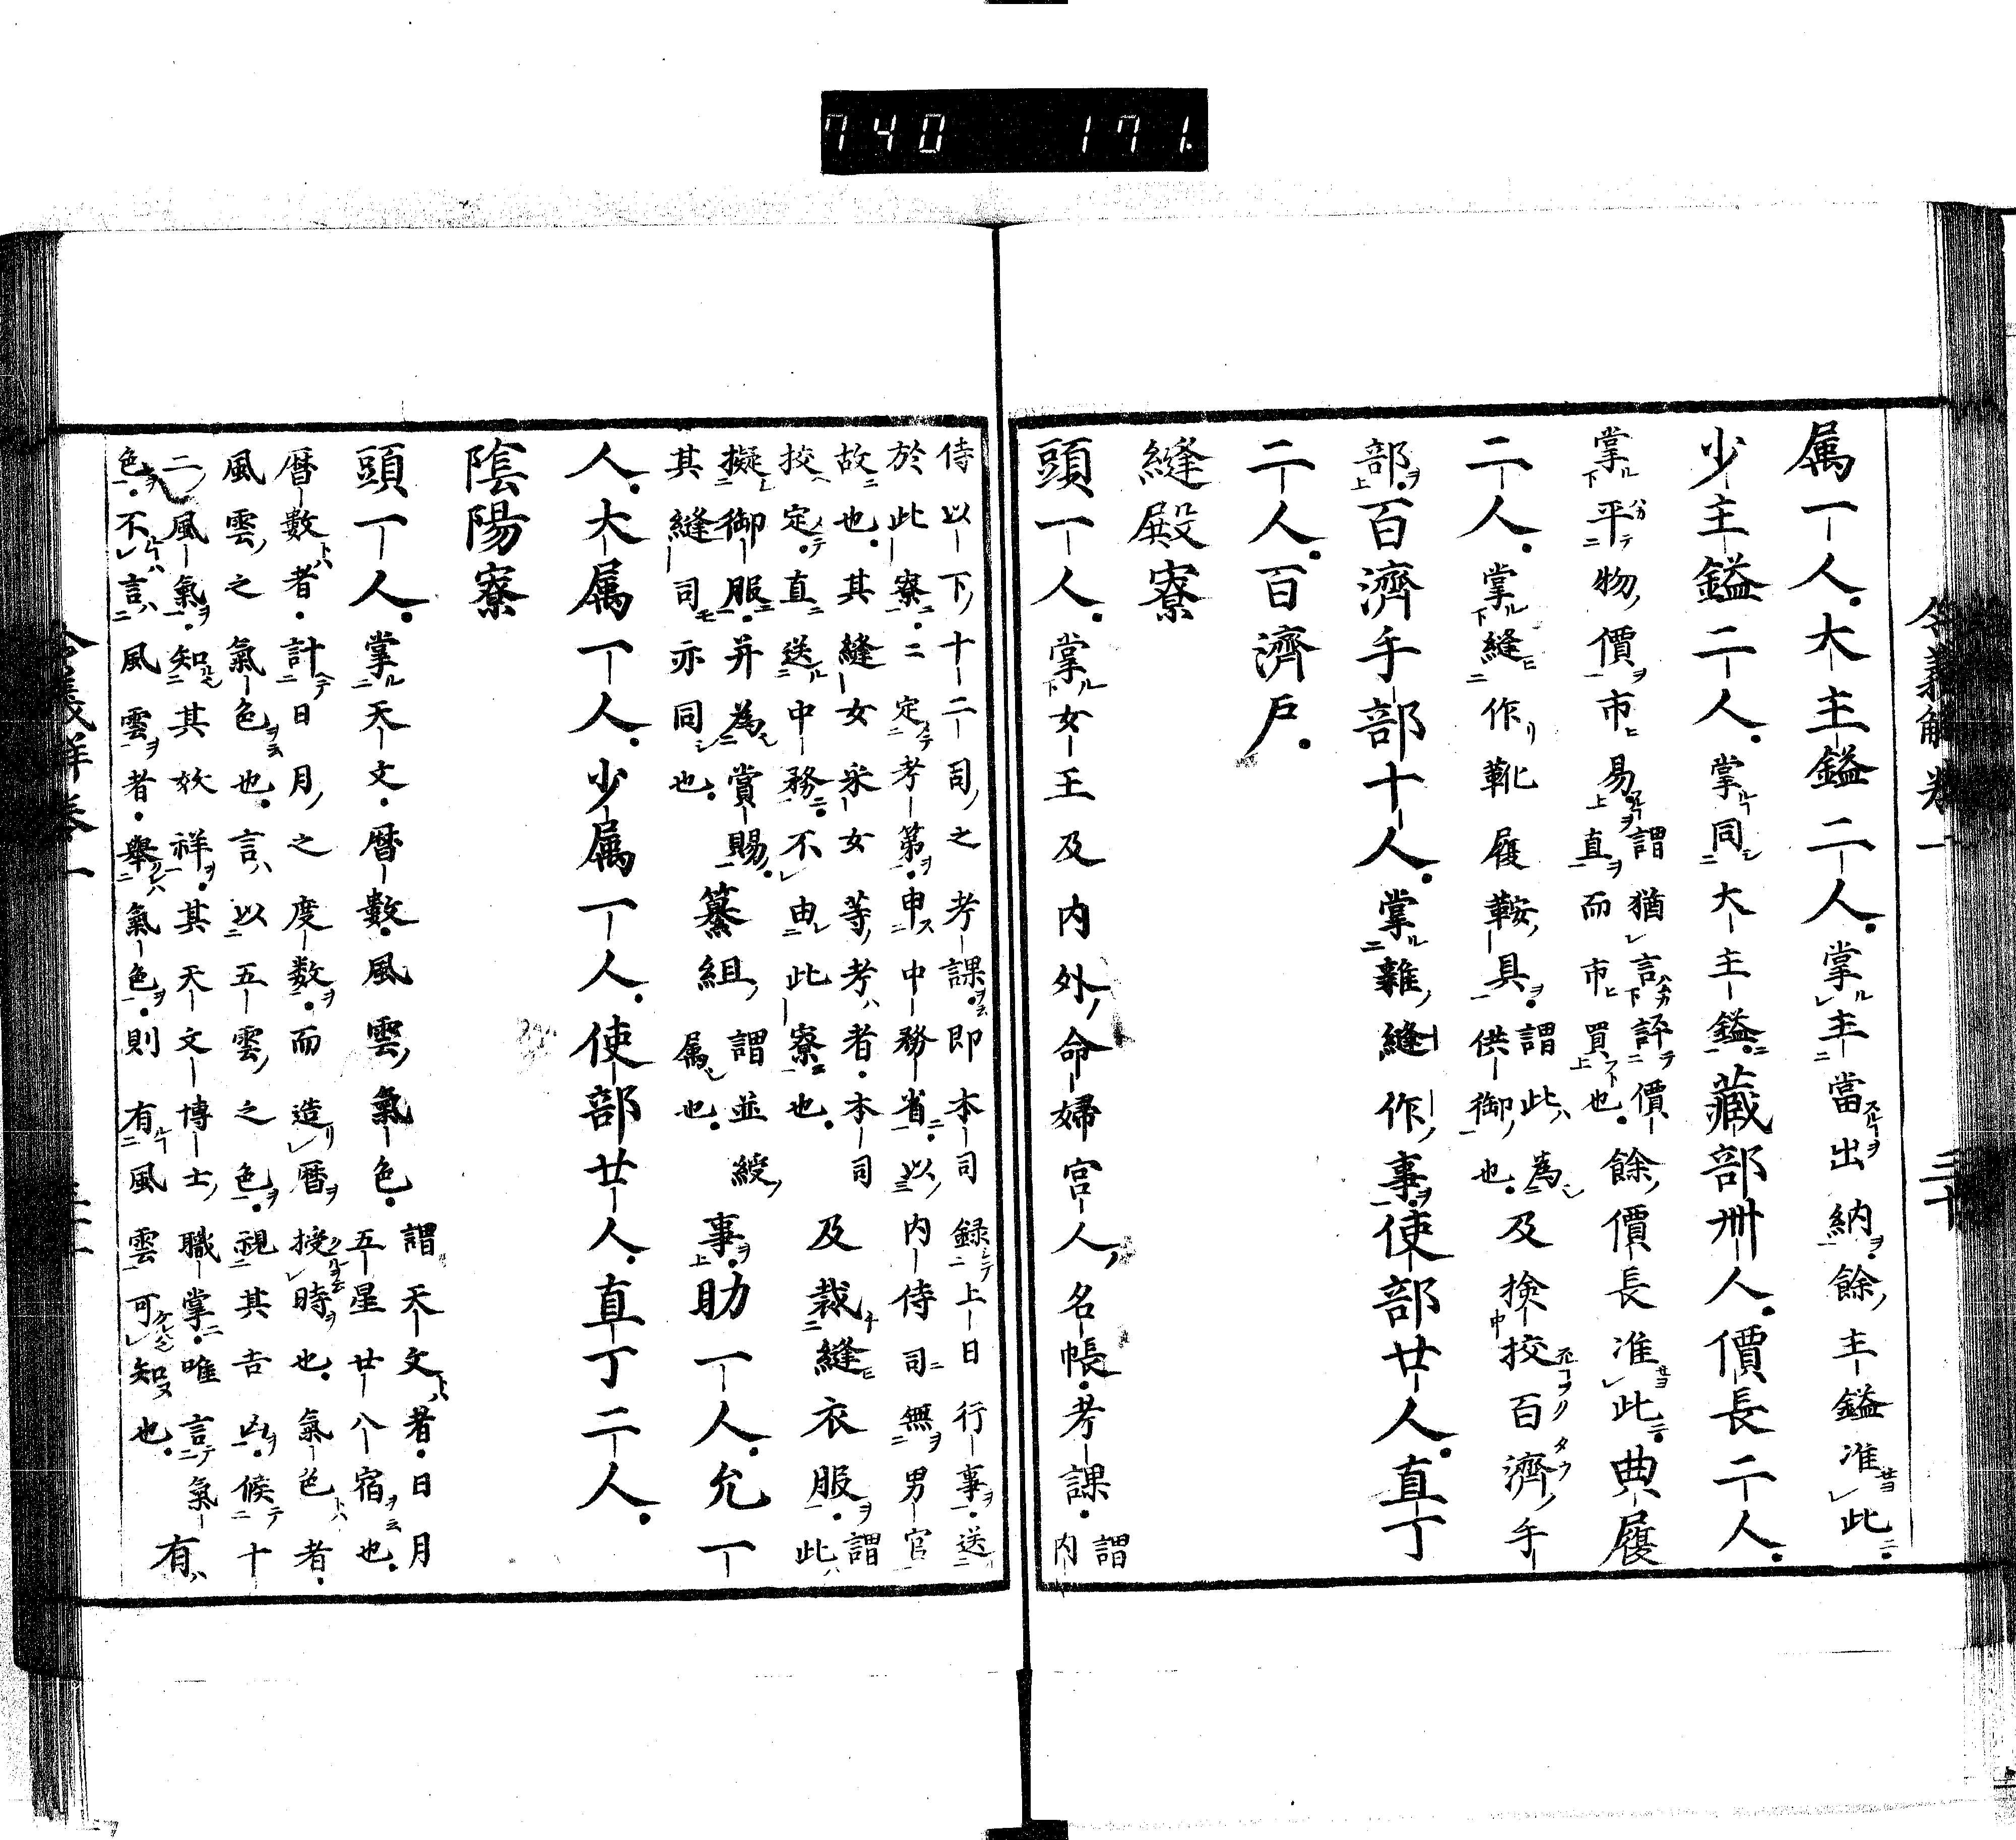 740 171.
令義解 卷一 三十
属一人。大主鎰二人。掌主當出納。餘主鎰准此。
少主鎰二人。掌同大主鎰。藏部卅人。價長二人。
掌平物價市易。謂猶言評價
直而市買也。餘價長准此。典履
二人。掌縫作靴履鞍具。謂此為
供御也。及檢挍百濟手
部。百濟手部十人。掌雜縫作事。使部廿人。直丁
二人。百濟戸。
縫殿寮
頭一人。掌女王及内外命婦宮人名帳。考課。謂
内
侍以下十二司之考課。即本司録上日行事。送
於此寮。定考第。申中務省。以内侍司無男官
故也。其縫女采女等考者。本司
挍定。直送中務。不由此寮也。及裁縫衣服。謂
此
擬御服。并為賞賜。
其縫司亦同也。纂組謂並綬
属也。事。助一人。允一
人。大属一人。少属一人。使部廿人。直丁二人。
陰陽寮
頭一人。掌天文。暦數。風雲氣色。謂天文者。日月
五星廿八宿也。
暦數者。計日月之度數。而造暦授時也。氣色者。
風雲之氣色也。言以五雲之色。視其吉凶。候十
二風氣。知其妖祥。其天文博士職掌。唯言氣
色。不言風雲者。舉氣色。則有風雲可知也。有
令義解 卷一